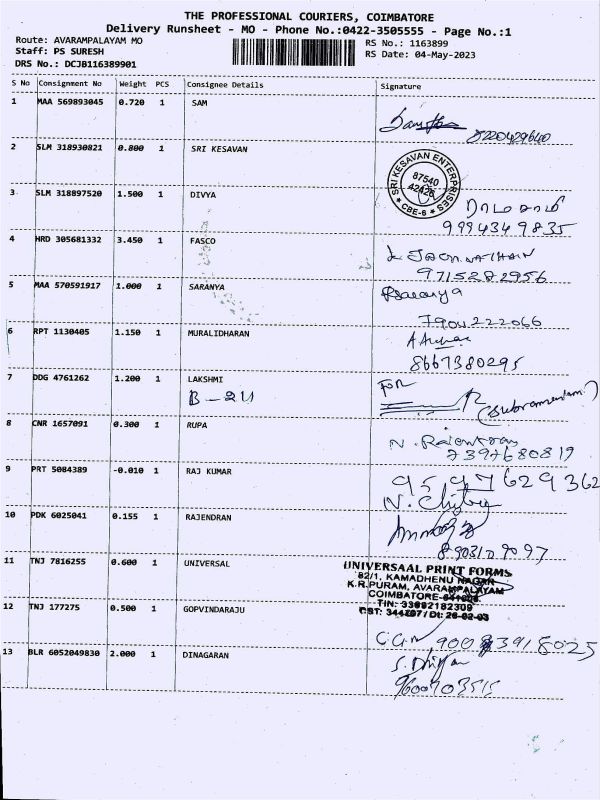 THE PROFESSIONAL COURIERS, COIMBATORE
Delivery Runsheet - MO - Phone No.:0422-3505555 - Page No.:1
Route: AVARAMPALAYAM MO
Staff: PS SURESH
DRS No.: DCJB116389901
RS No.: 1163899
RS Date: 04-May-2023
S No Consignment No Weight PCS Consignee Details Signature
1 MAA 569893045 0.720 1 SAM
8220429640
2 SLM 318930821 0.800 1 SRI KESAVAN
SRI KESAVAN ENTERPRISES
87540
42426
* CBE-6 *
3 SLM 318897520 1.500 1 DIVYA
9994349835
4 HRD 305681332 3.450 1 FASCO
9715282956
5 MAA 570591917 1.000 1 SARANYA
Rsaranya
7904222066
6 RPT 1130405 1.150 1 MURALIDHARAN
8667380295
7 DDG 4761262 1.200 1 LAKSHMI
For
(Subramaniam)
8 CNR 1657091 0.300 1 RUPA
7397680819
9 PRT 5084389 -0.010 1 RAJ KUMAR
9597629362
10 PDK 6025041 0.155 1 RAJENDRAN
11 TNJ 7816255 0.600 1 UNIVERSAL
UNIVERSAAL PRINT FORMS
82/1, KAMADHENU NAGAR
K.R.PURAM, AVARAMPALAYAM
COIMBATORE-641006
TIN: 33692182309
12 TNJ 177275 0.500 1 GOPVINDARAJU
13 BLR 6052049830 2.000 1 DINAGARAN
9600703515